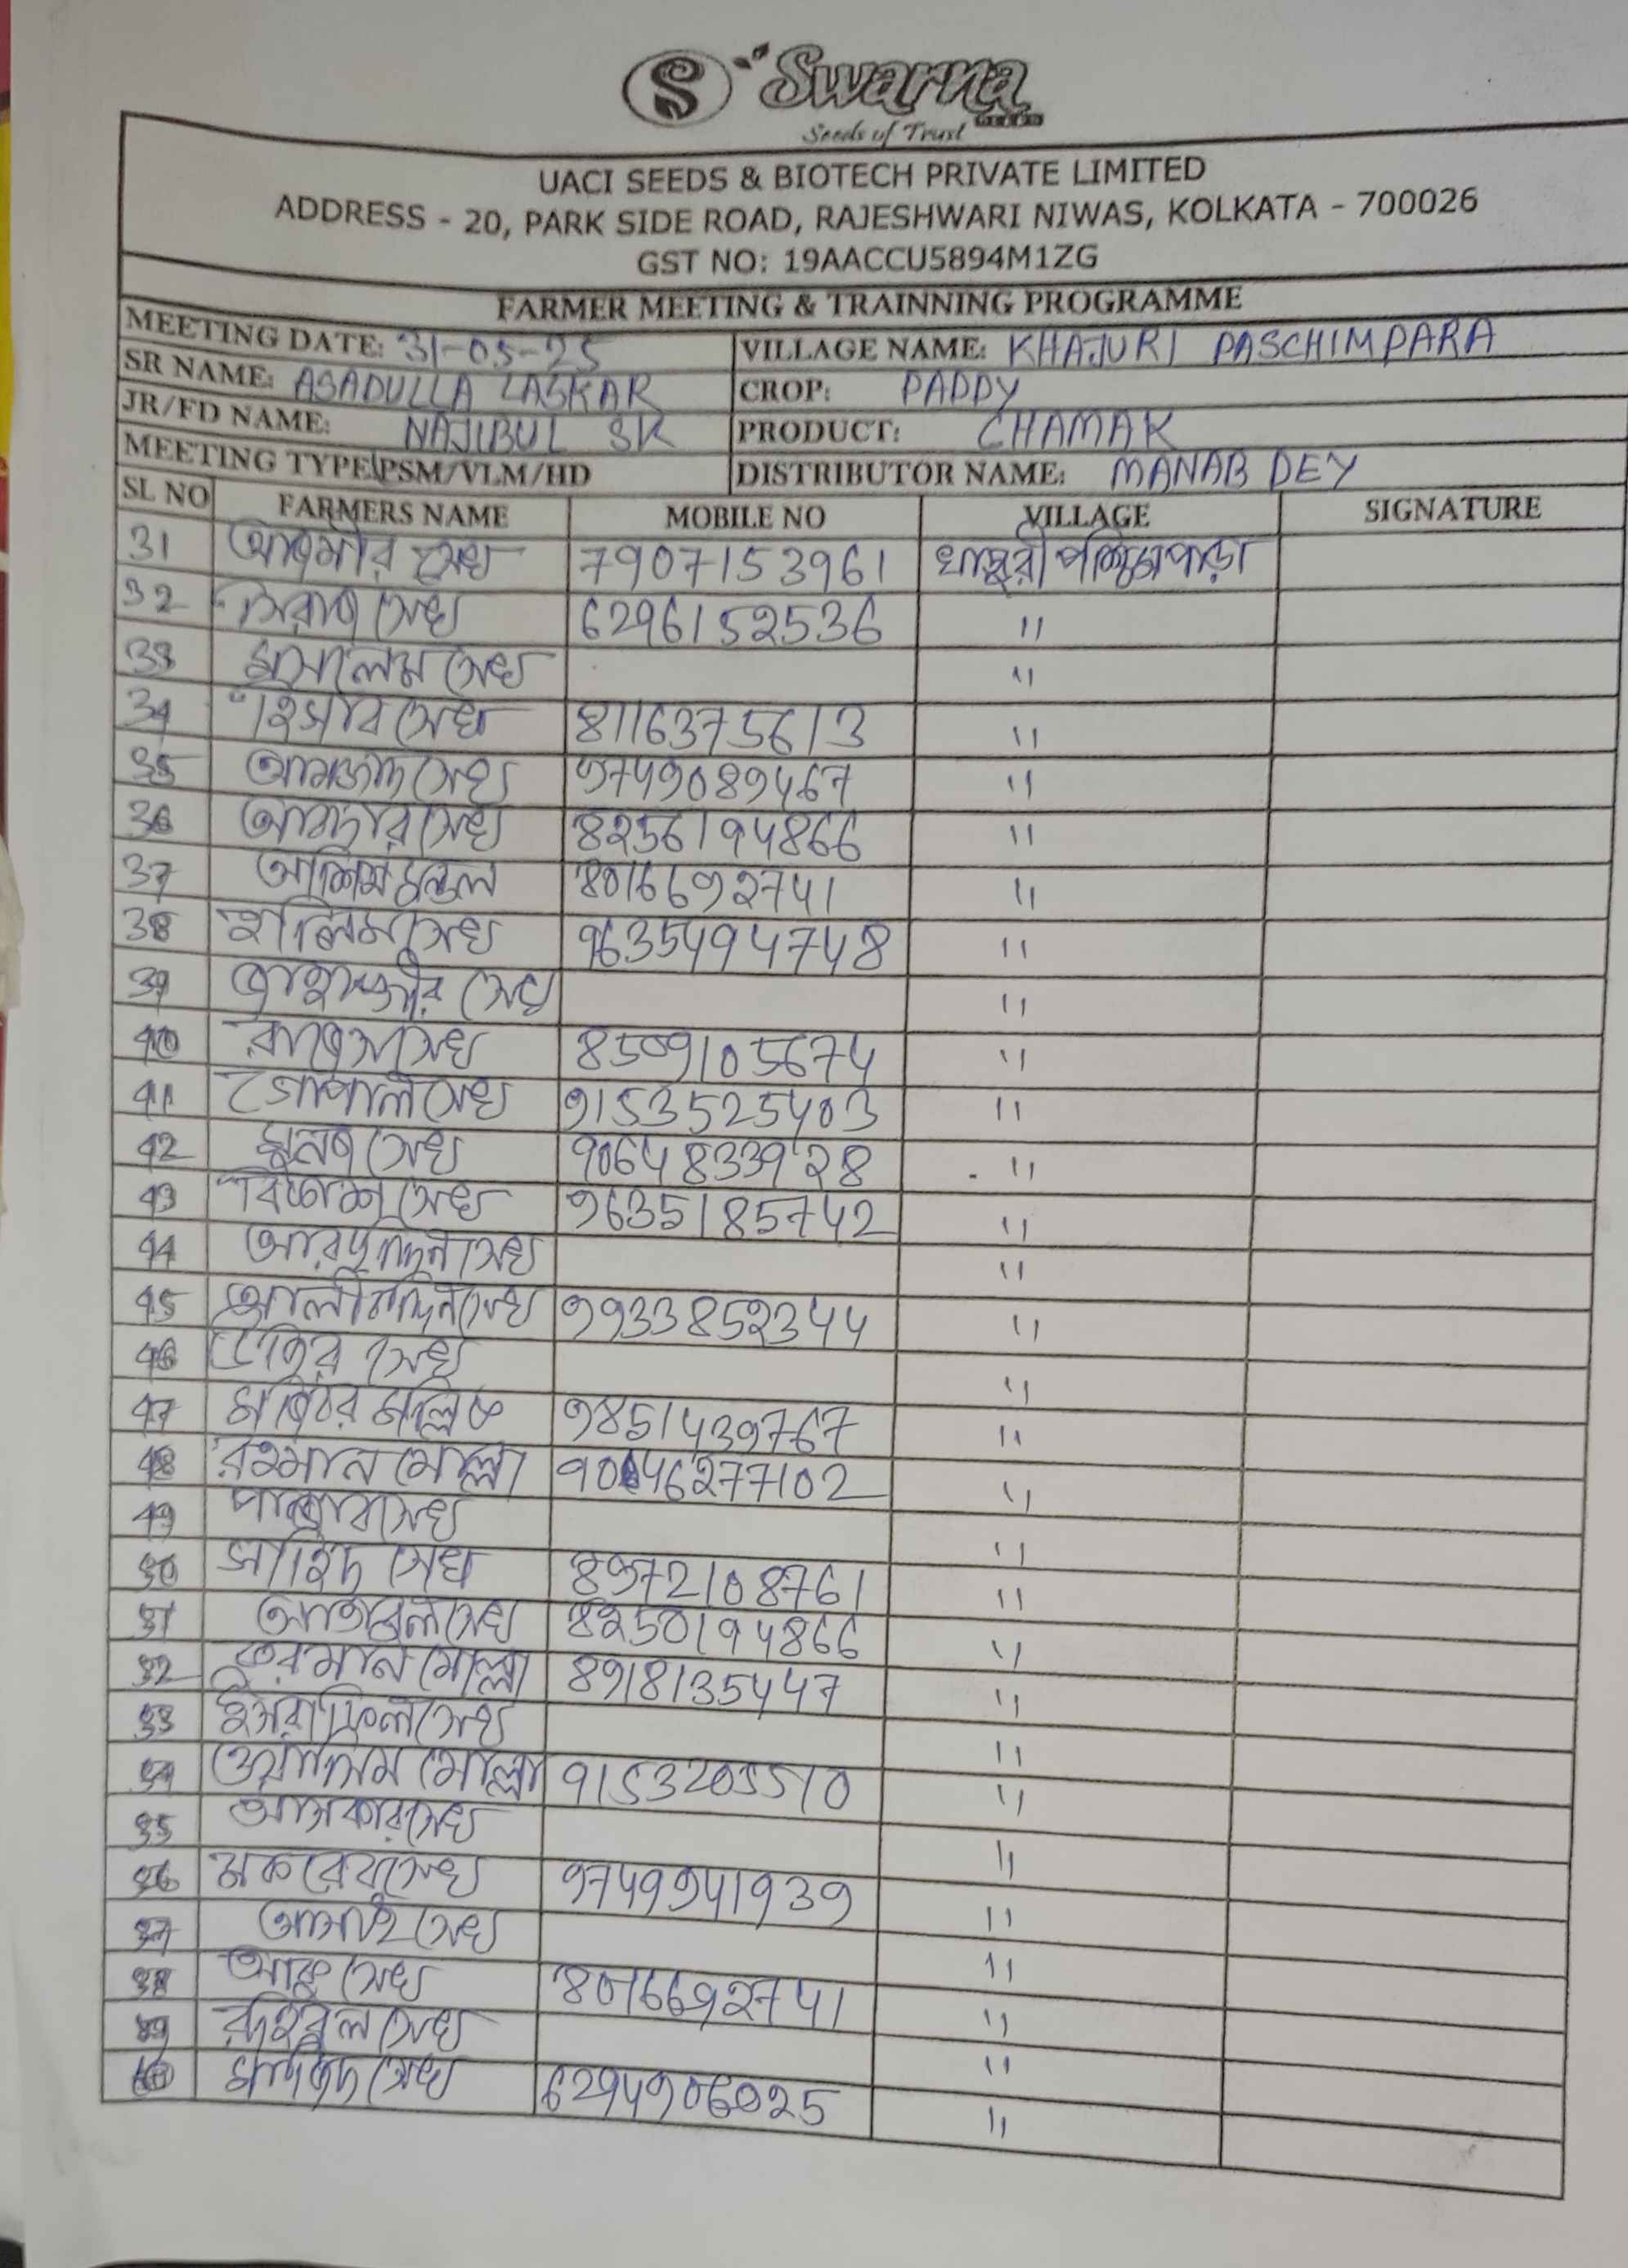 S Swarna
Seeds of Trust
UACI SEEDS & BIOTECH PRIVATE LIMITED
ADDRESS - 20, PARK SIDE ROAD, RAJESHWARI NIWAS, KOLKATA - 700026
GST NO: 19AACCU5894M1ZG
FARMER MEETING & TRAINNING PROGRAMME
MEETING DATE: 31-05-25 VILLAGE NAME: KHAJURI PASCHIMPARA
SR NAME: ASADULLA LASKAR CROP: PADDY
JR/FD NAME: NAJIBUL SK PRODUCT: CHAMAK
MEETING TYPE\PSM/VLM/HD DISTRIBUTOR NAME: MANAB DEY
SL NO FARMERS NAME MOBILE NO VILLAGE SIGNATURE
31 আজমীর সেখ 7907153961 খাজুরী পশ্চিমপাড়া
32 সিরাজ সেখ 6296152536 "
33 মুসালেম সেখ "
34 হিসাব সেখ 8116375613 "
35 আমজাদ সেখ 9749089467 "
36 সেখ 8256194866 "
37 আশিম মন্ডল 8016692741 "
38 হালিম সেখ 9635494748 "
39 জাহাঙ্গীর সেখ "
40 সেখ 8509105674 "
41 গোপাল সেখ 9153525403 "
42 সেখ 9064833928 "
43 বিকাশ সেখ 9635185742 "
44 সেখ "
45 সেখ 9933852344 "
46 সেখ "
47 মল্লিক 9851439767 "
48 রহমান মোল্লা 46277102 "
49 পাঞ্জাব সেখ "
50 সাহিদ সেখ 8972108761 "
51 সেখ 8250194866 "
52 মোল্লা 8918135447 "
53 ইসরাফিল সেখ "
54 ওয়াসিম মোল্লা 9153205510 "
55 আসকার সেখ "
56 সেখ 9749941939 "
57 সেখ "
58 সেখ 8016692741 "
59 সেখ "
60 সেখ 6294906025 "